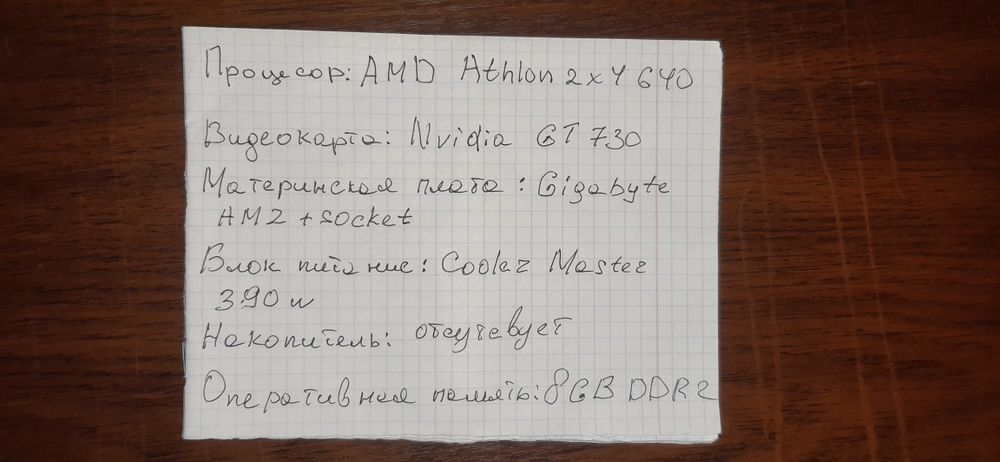 Процесор: AMD Athlon 2x4 640
Видеокарта: Nvidia GT 730
Материнская плата: Gigabyte
AM2 + socket
Блок питание: Cooler Master
390 w
Накопитель: отсучевует
Оперативная память: 8GB DDR2